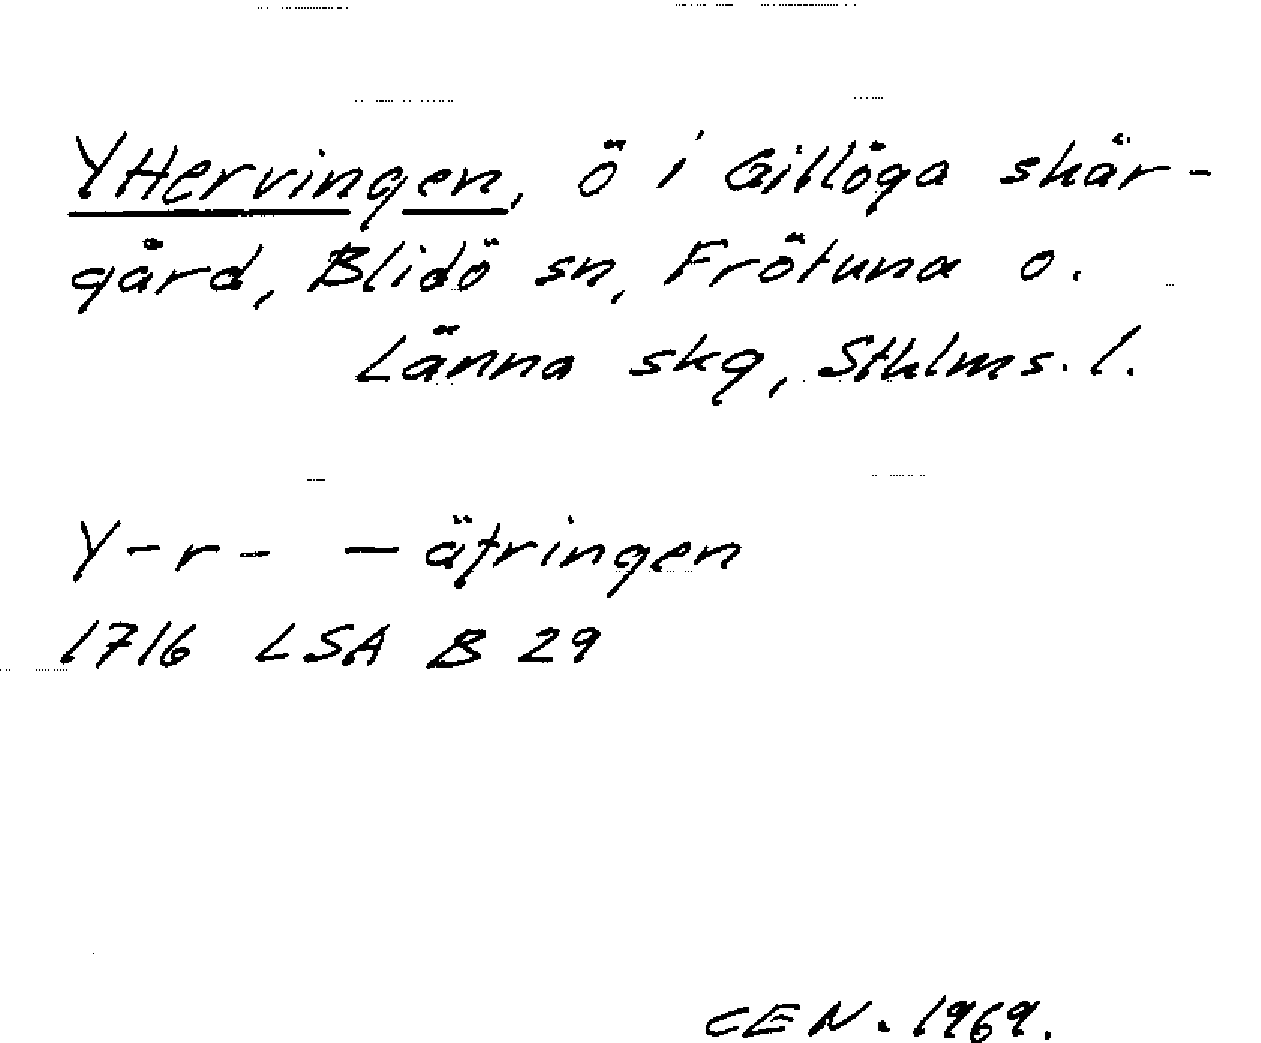 Yttervingen, ö i Gillöga skär-
gård, Blidö sn, Frötuna o.
Länna skg, Sthlms. l.
Y-r- — äfringen
1716 LSA B 29
CEN. 1969.